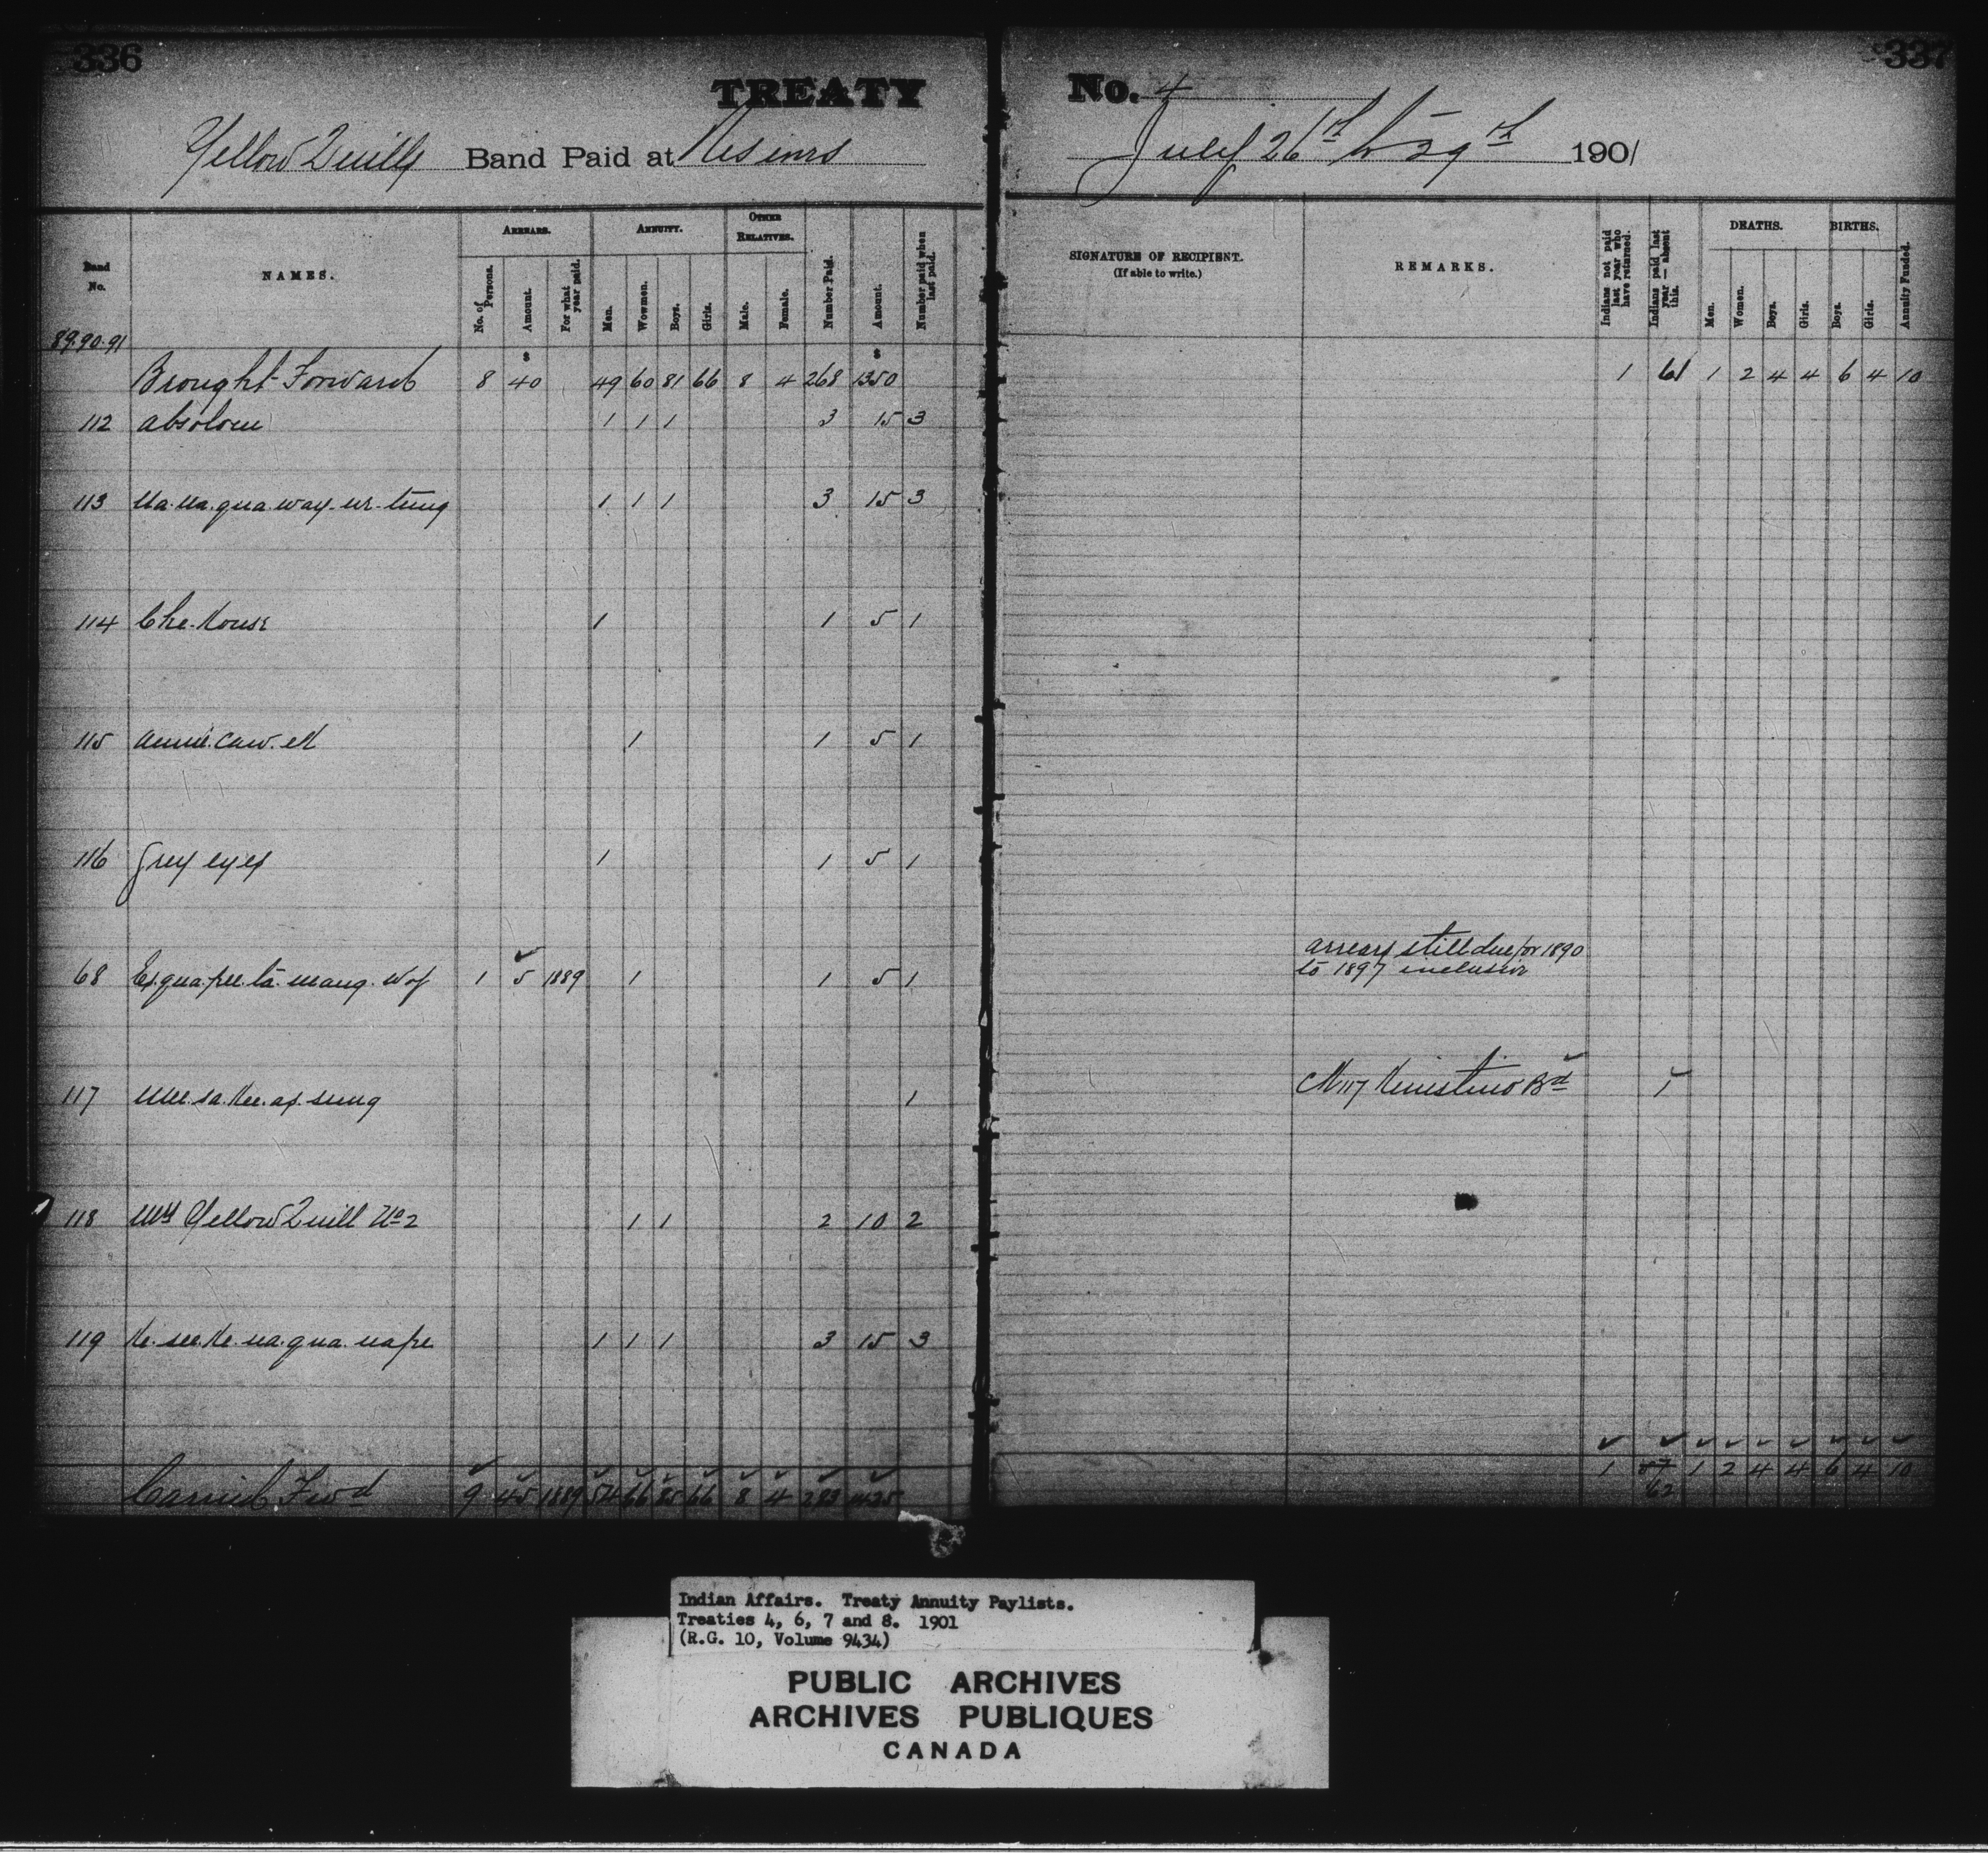 336
337
TREATY No. 4
Yellow Quills Band Paid at July 26th to 29th 1901
Band No. NAMES. ARREARS. ANNUITY. OTHER RELATIVES. Number Paid. Amount. Number paid when last paid.
No. of Persons. Amount. For what year paid. Men. Wowmen. Boys. Girls. Male. Female.
SIGNATURE OF RECIPIENT. (If able to write.) REMARKS. Indians not paid last year who have returned. Indians paid last year — absent this. DEATHS. BIRTHS. Annuity Funded.
Men. Women. Boys. Girls. Boys. Girls.
89.90.91
Brought Forward 8 $40 49 60 81 66 8 4 268 $1350 1 61 1 2 4 4 6 4 10
112 Absolom 1 1 1 3 15 3
113 Na.na.qua.way. 1 1 1 3 15 3
114 Che.Kouse 1 1 5 1
115 Annie.Caw. 1 1 5 1
116 Grey eyes 1 1 5 1
arrears still due for 1890
to 1897 inclusive
68 1 5 1889 1 1 5 1
117 1 Kinistino Bd 1
118 Mrs Yellow Quill No 2 1 1 2 10 2
119 Ke.see.Ke.na.qua.nape 1 1 1 3 15 3
Carried Fwd 9 45 1889 54 66 85 66 8 4 283 1425 1 1 2 4 4 6 4 10
62
Indian Affairs. Treaty Annuity Paylists.
Treaties 4, 6, 7 and 8. 1901
(R.G. 10, Volume 9434)
PUBLIC ARCHIVES
ARCHIVES PUBLIQUES
CANADA